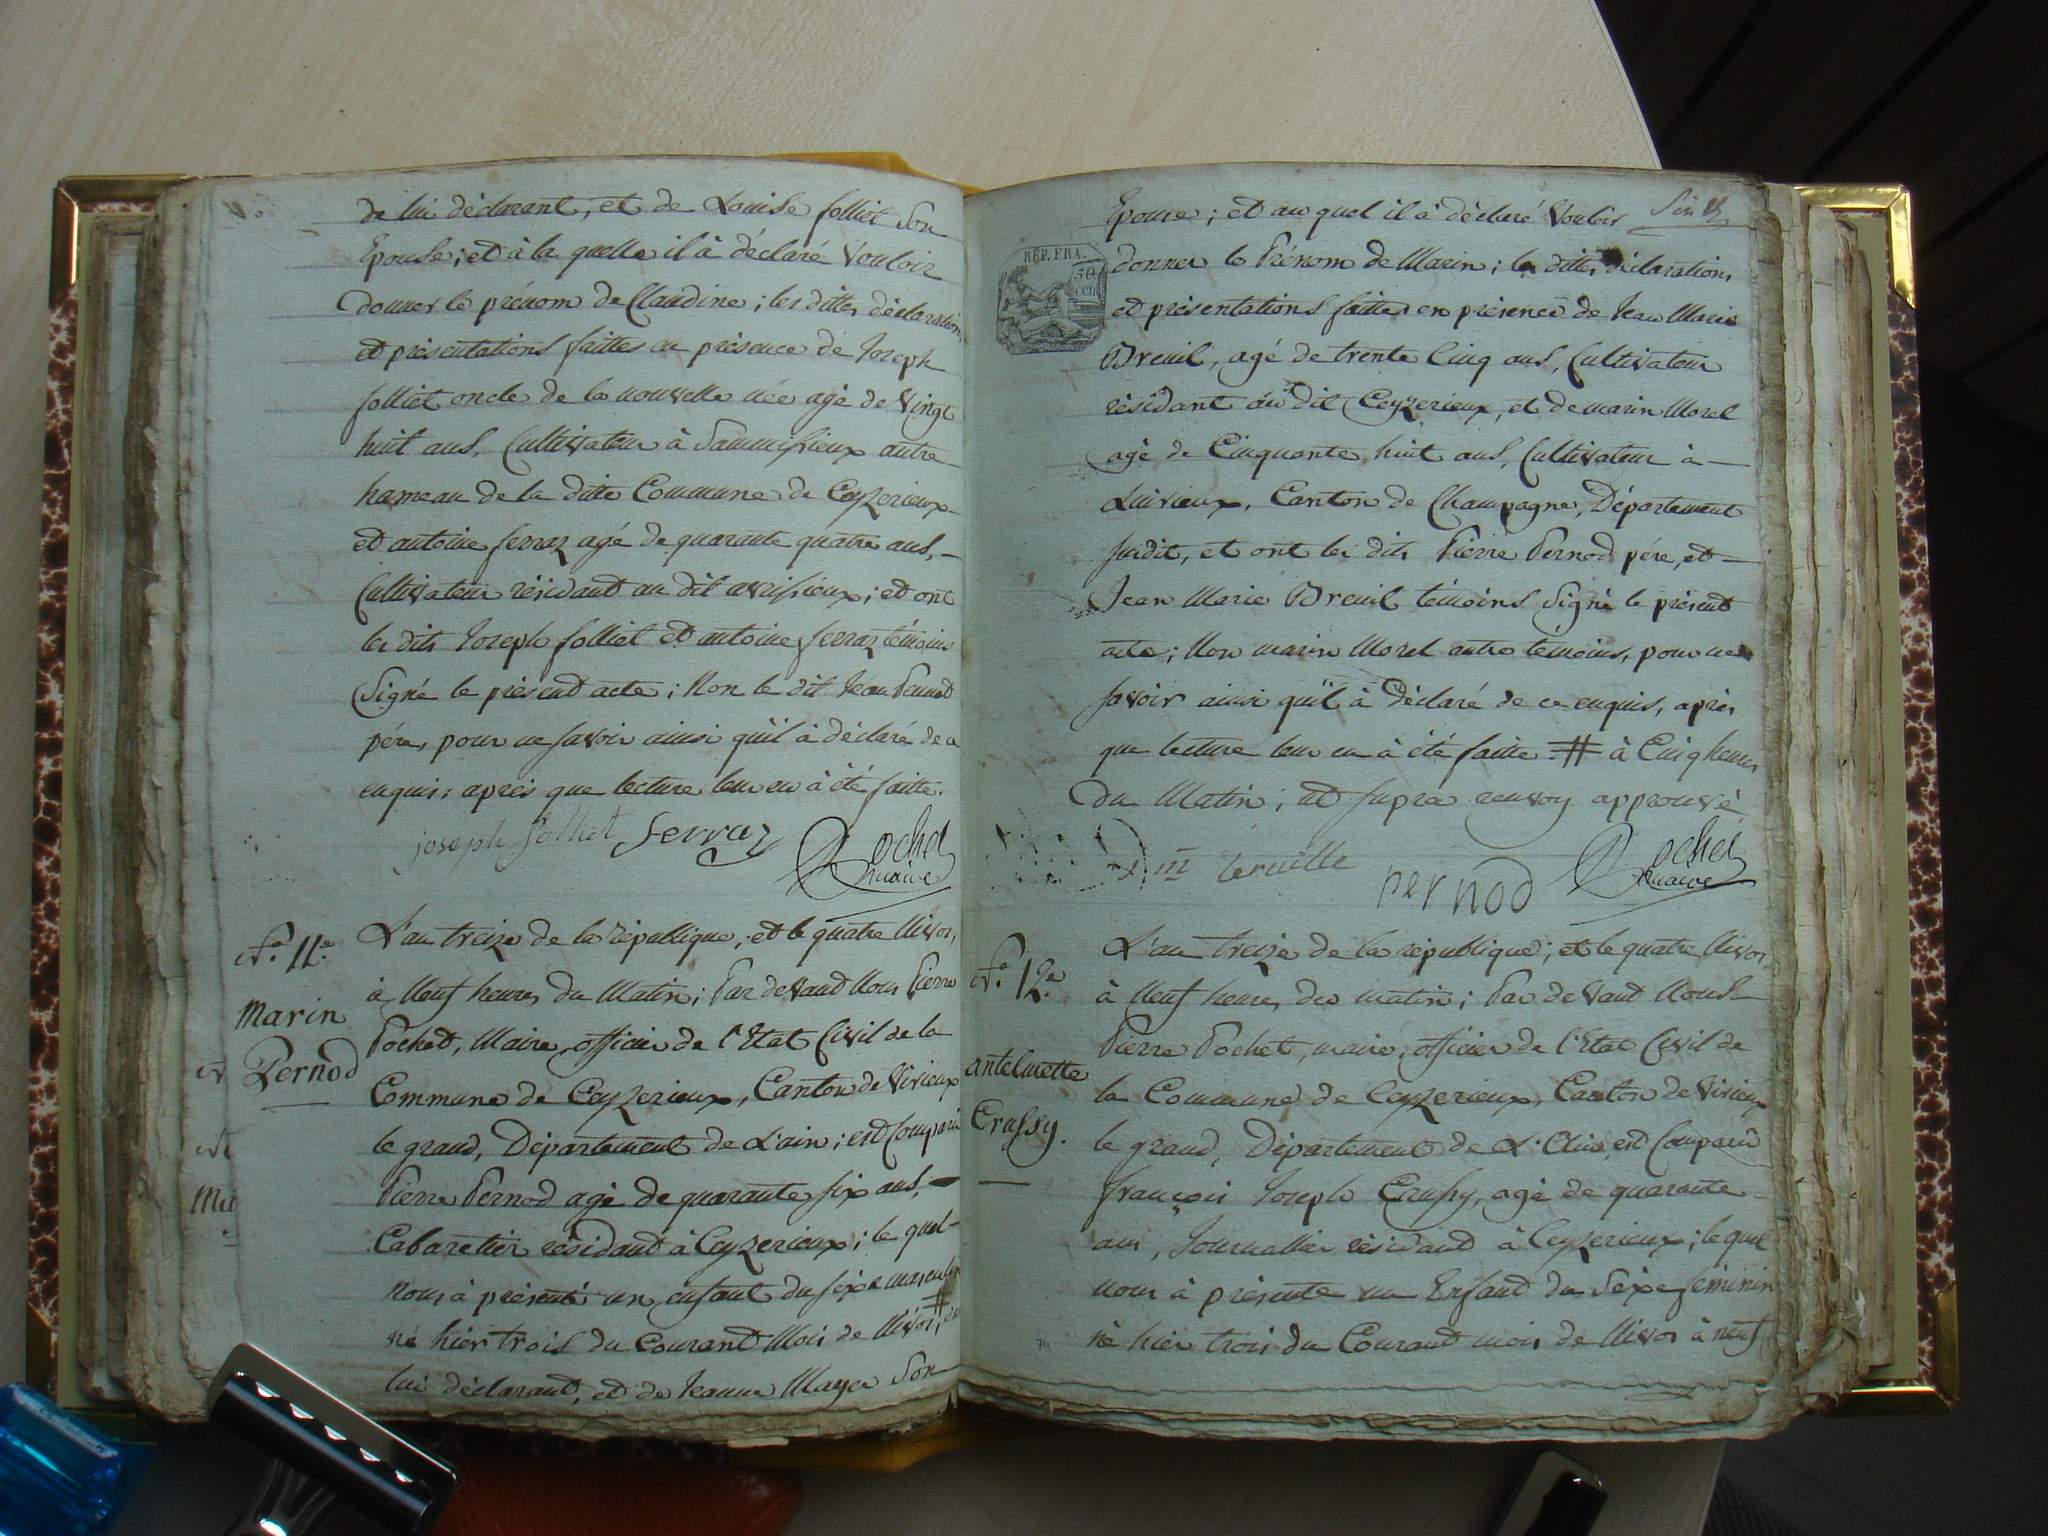 de lui déclarant, et de Louise folliet Son
Epouse; et à la quelle il à déclaré Vouloir
donner le prénom de Claudine; les dittes déclarations
et présentations faittes en présence de Joseph
folliet oncle de la nouvelle née agé de Vingt
huit ans, Cultivateur à Sammissieux autre
hameau de la ditte Commune de Ceyzerieux
et antoine ferraz agé de quarante quatre ans,
Cultivateur résidant au dit avrissieux; et ont
les dits Joseph folliet et antoine ferraz témoins
Signé le présent acte; Non le dit Jean
père, pour ne savoir ainsi qu'il à déclaré de ce
enquis; après que lecture leur en à été faitte.
joseph folliet ferraz Pochet
maire
N.º 11.e
Marin
Pernod
L'an treize de la république; et le quatre Nivos,
à Neuf heures du Matin; Par devand Nous Pierre
Pochet, Maire, officier de l'Etat Civil de la
Commune de Ceyzerieux, Canton de Virieux
le grand, Département de L'ain; est Comparu
Pierre Pernod agé de quarante six ans,
Cabaretier résidand à Ceyzerieux; le quel
nous à présenté un enfant du sixe masculin
né hier trois du Courand Mois de Nivos, # de
lui déclarant, et de Jeanne Mayer Son
Epouse; et au quel il à déclaré Vouloir
REP. FRA.
50
cen
donner le Prénom de Marin; les dittes déclarations
et présentations faittes en présence de Jean Marie
Breuil, agé de trente Cinq ans, Cultivateur
résidant au dit Ceyzerieux, et de marin Morel
agé de Cinquante huit ans, Cultivateur à
Luirieux, Canton de Champagne, Département
susdit, et ont les dits Pierre Pernod père, et
Jean Marie Breuil témoins Signé le présent
acte; Non marin Morel autre témoins, pour ne
savoir ainsi qu'il à déclaré de ce enquis, après
que lecture leur en à été faitte. # à Cinq heures
du Matin; et supra renvoy approuvé
pernod Pochet
maire
N.º 12.e
antelmette
Crussy.
L'an treize de la république; et le quatre Nivos,
à Neuf heures du matin; Par devant Nous
Pierre Pochet, maire, officier de l'Etat Civil de
la Commune de Ceyzerieux, Canton de Virieux
le grand, Département de L'Ain, est Comparu
françois Joseph Crussy, agé de quarante
ans, Journallier résidand à Ceyzerieux; le quel
nous à présenté un Enfand du Sexe féminin
né hier trois du Courand mois de Nivos à neuf